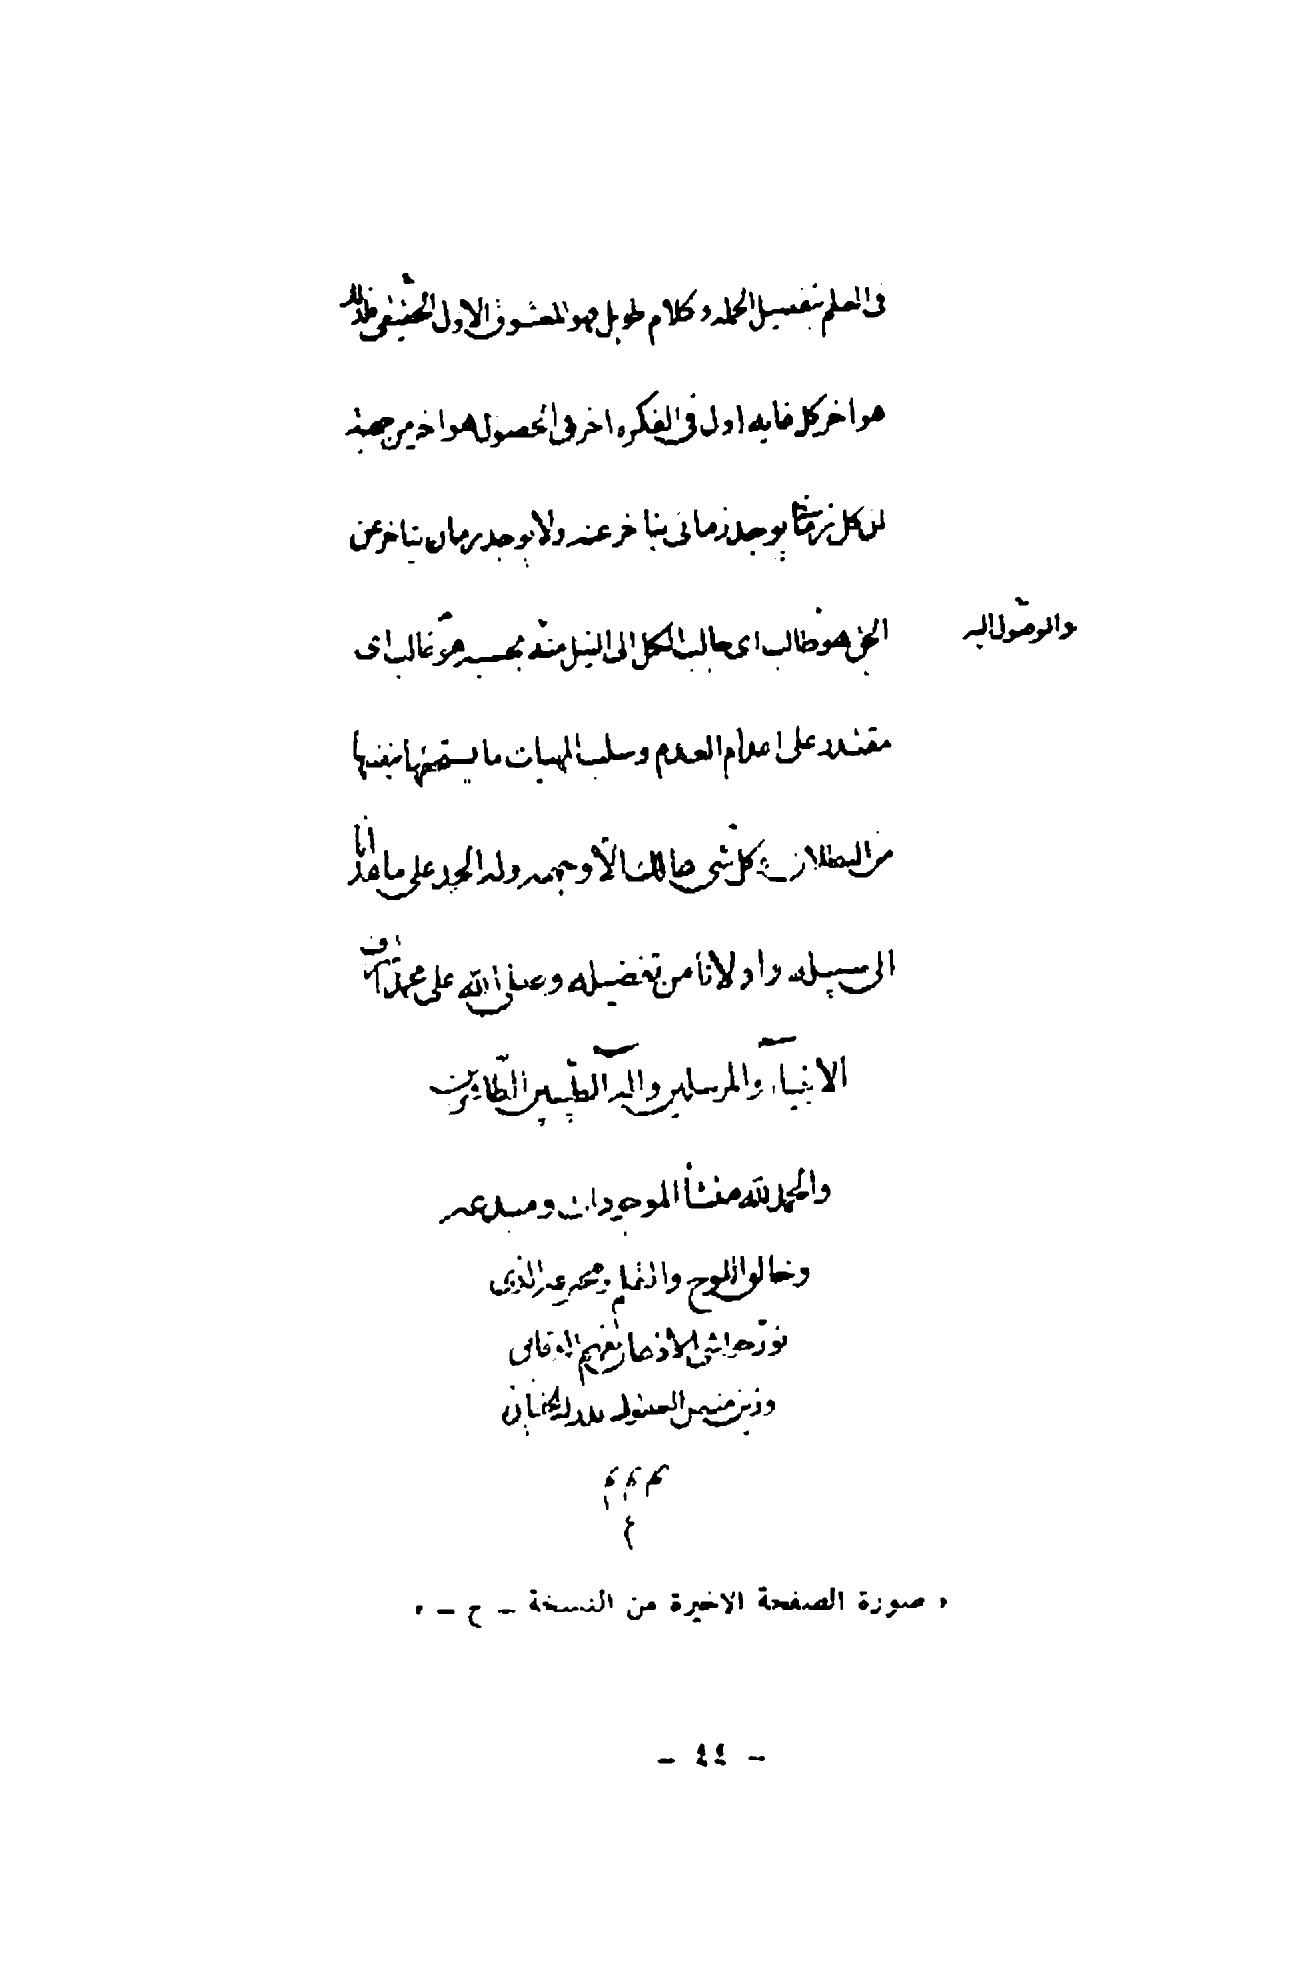 فى العلم تفصيل الجمله وكلام طويل فهو المعشوق الاول الحقيقى فلذلك
هو اخر كل غايه اول فى الفكره اخر فى الحصول هو اخر من جهة
ان كل زمانى يوجد زمانى يتاخر عنه ولا يوجد زمان يتاخر عن
الحق هو طالب اى طالب الكل الى النيل منه بحسبه هو غالب اى
والوصول اليه
مقتدر على اعدام العدم وسلب المهيات ما يستحقها بنفسها
من البطلان كلّ شى هالك الّا وجهه وله الحمد على ما هدانا
الى سبيله واولانا من تفضيله وصلى الله على محمد اشرف
الانبياء والمرسلين واله الطيبين الطاهرين
والحمد لله منشأ الموجودات ومبدعه
وخالق اللوح والقلم ومخترعه الذى
نوّر حواشى الاذهان بفهم الدقائق
وزين العقول بدرك الحقائق
م م م
٤
« صورة الصفحة الاخيرة من النسخة ـ ح ـ »
ـ ٤٤ ـ